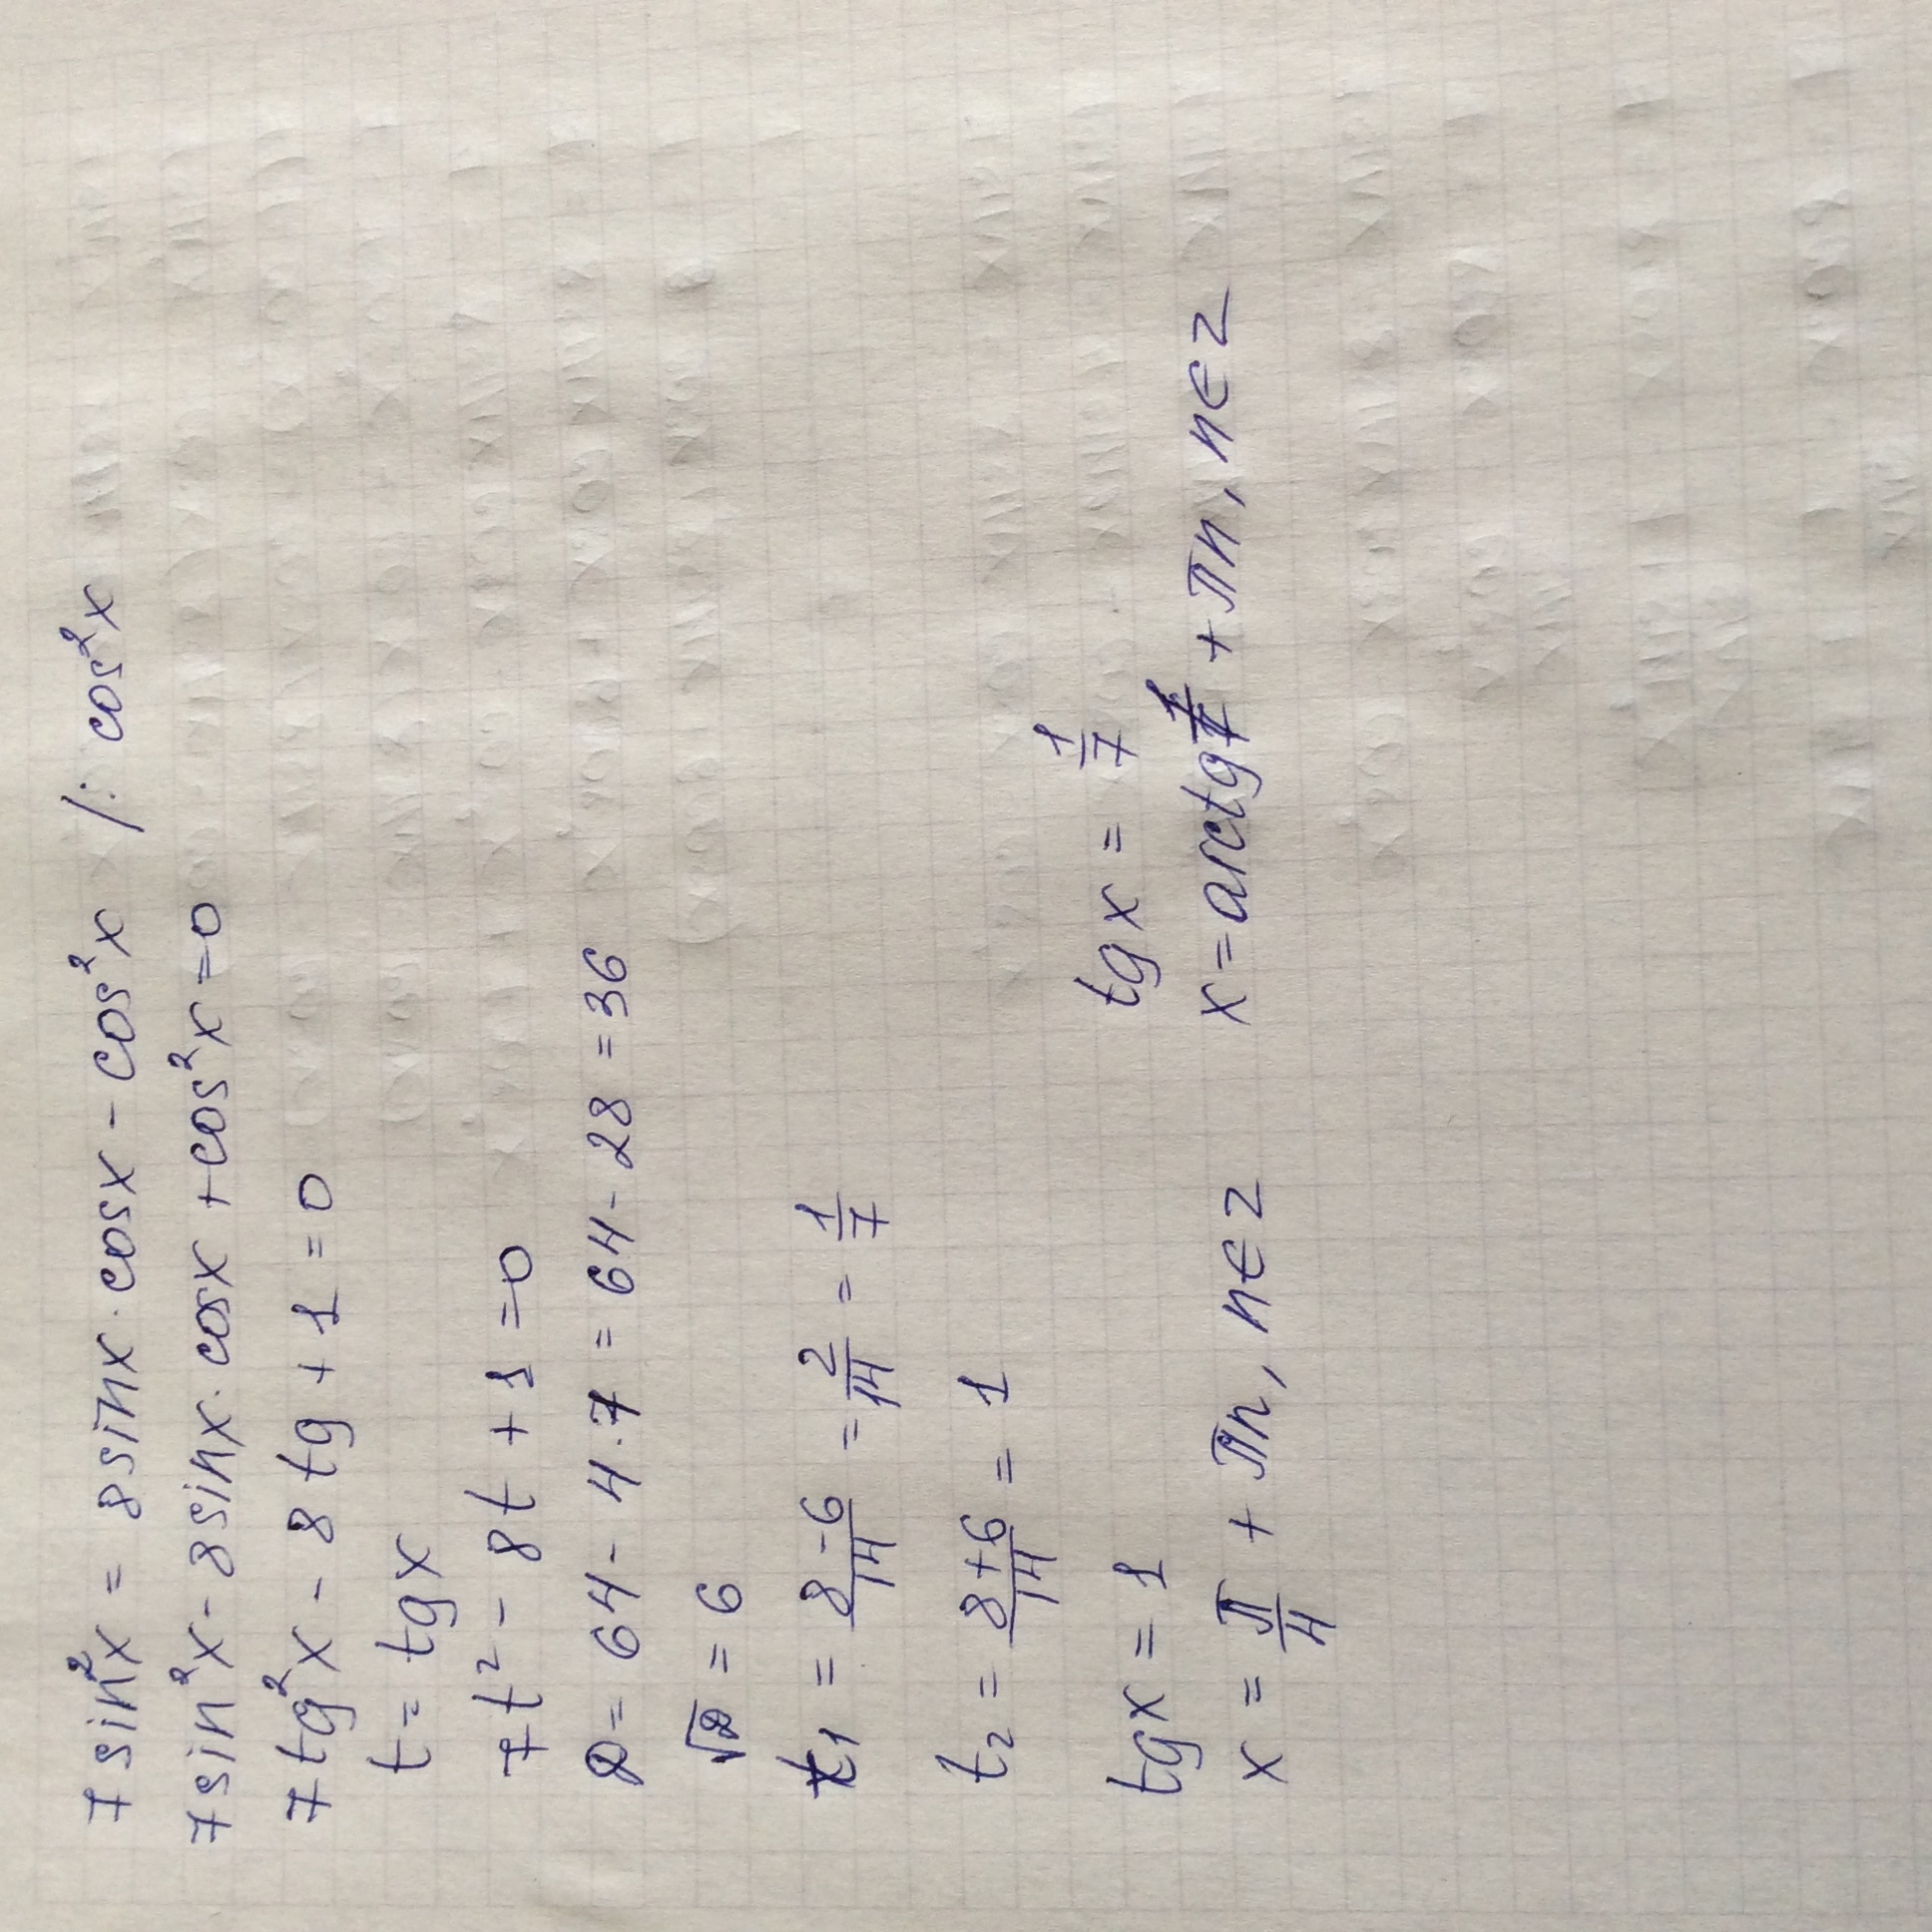 7 sin²x = 8 sinx · cosx - cos²x /: cos²x
7 sin²x - 8 sinx · cosx + cos²x = 0
7 tg²x - 8 tg + 1 = 0
t = tgx
7t² - 8t + 1 = 0
D = 64 - 4 · 7 = 64 - 28 = 36
√D = 6
t₁ = (8-6)/14 = 2/14 = 1/7
t₂ = (8+6)/14 = 1
tgx = 1 tgx = 1/7
x = π/4 + πn, n∈Z x = arctg 1/7 + πn, n∈Z